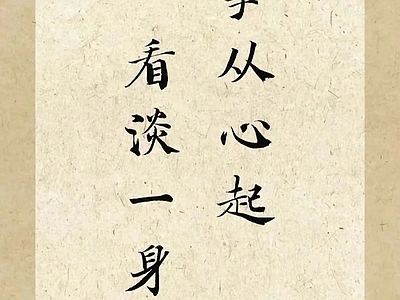 从心起
看淡一身